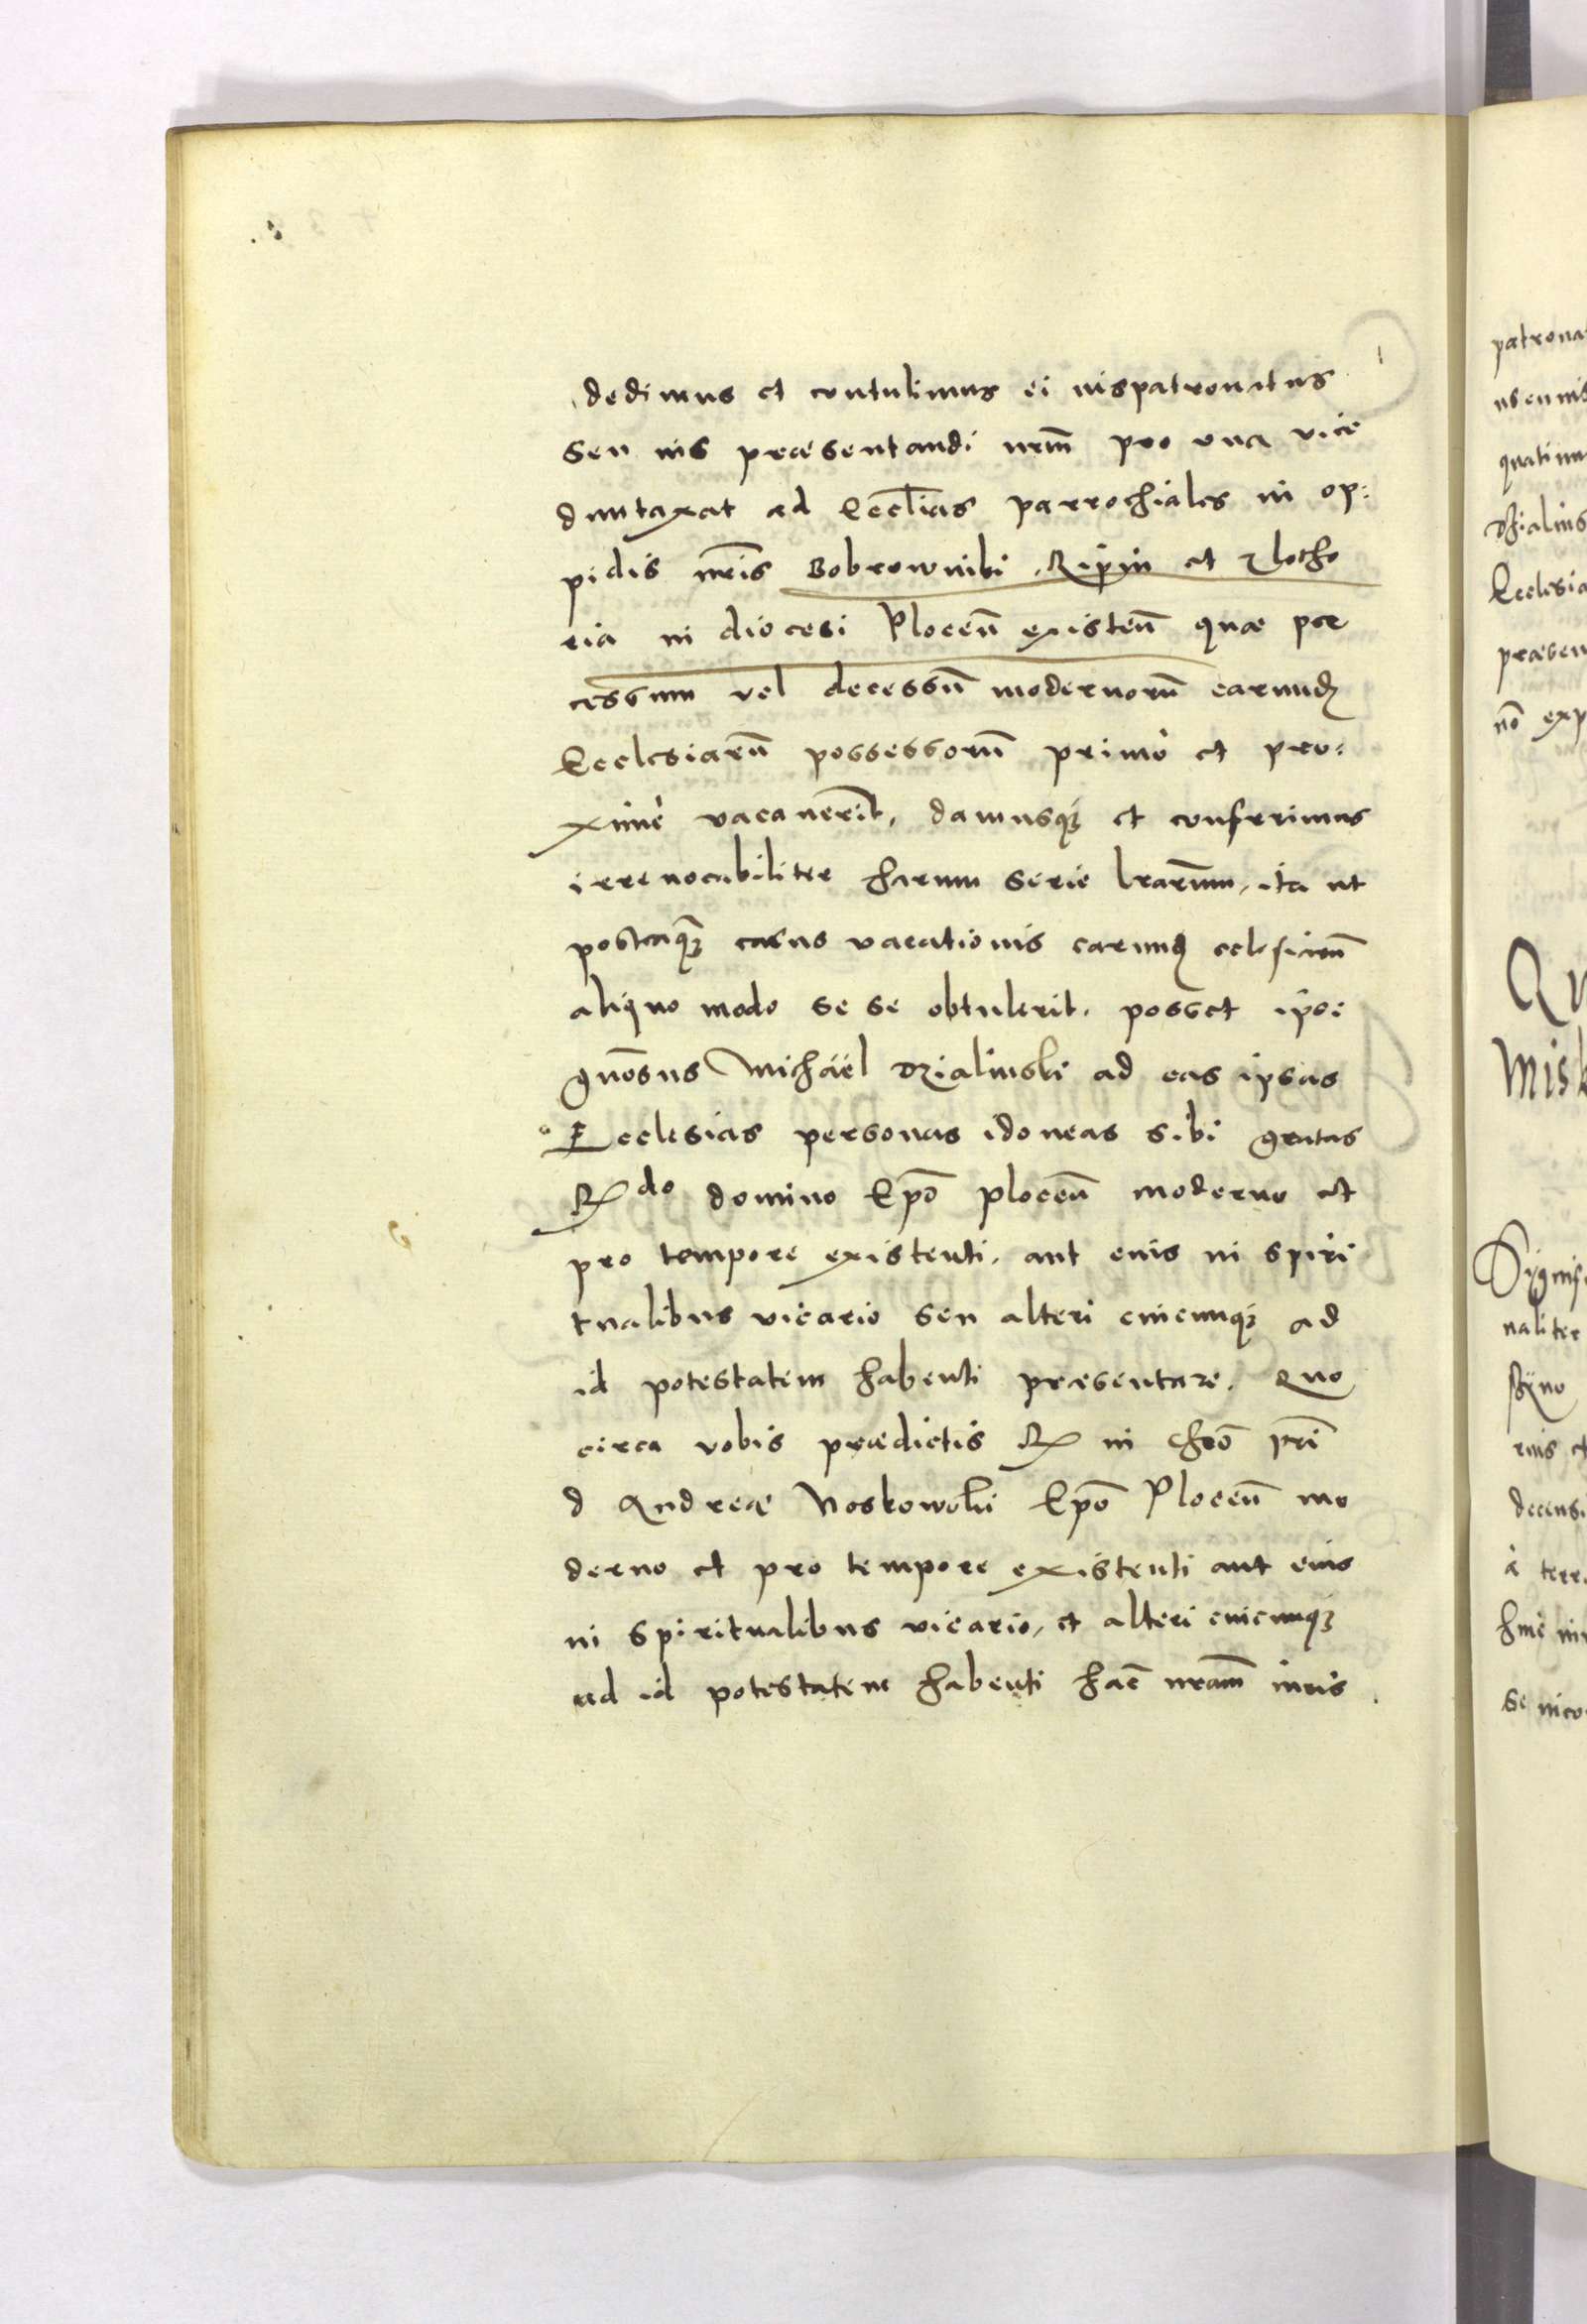 dedimus et contulimus ei iuspatronatus
seu ius præsentandi nrm̄ pro una vice
duntaxat ad Eccl̄ias parrochiales in op:
pidis nr̄is Bobrowniki Ripin et Zlotho
ria in diocesi Plocen̄ existen̄ quæ per
cessum vel decessū modernorū earund
Ecclesiarū possessorū primo et pro:
xime vacauerīt, damusq; et conferimus
irreuocabiliter harum serie lrārum, ita ut
posteaq̄; casus vacationis earund eclesiarū
aliquo modo se se obtulerit. posset ipse
gnōsus Michäel Dzialinski ad eas ipsas
Ecclesias personas idoneas sibi gratas
Rdo domino Epō plocen̄ moderno et
pro tempore existenti. aut eius in spiri
tualibus vicario seu alteri cuicunq; ad
id potestatem habenti præsentare. Quo
circa vobis prædictis R in Chrō pr̄i
d Andreæ Noskowski Epō Plocen̄ mo
derno et pro tempore existenti aut eius
in spiritualibus vicario, et alteri cuicunq;
ad id potestatem habenti hāc nrām iuris
patrona
quatinu
Dzialins
Ecclesia
præsen
nō exp
Qu
Misk
naliter
decensi
à terr